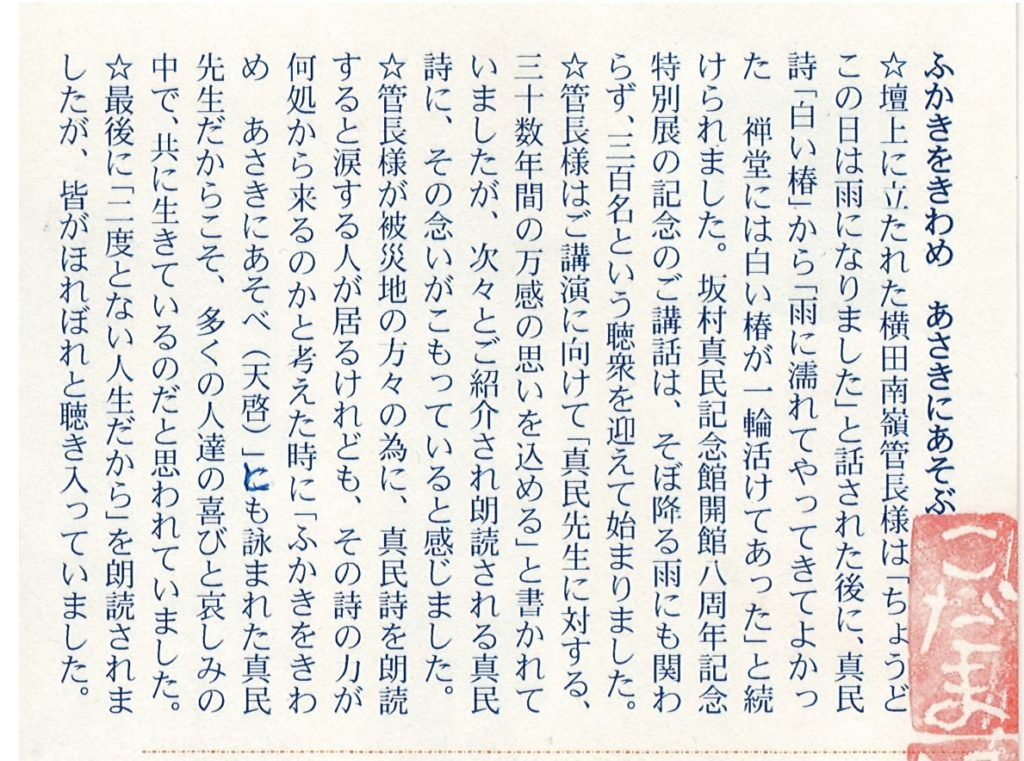 ふかきをきわめ　あさきにあそぶ
☆壇上に立たれた横田南嶺管長様は「ちょうど
この日は雨になりました」と話された後に、真民
詩「白い椿」から「雨に濡れてやってきてよかっ
た　禅堂には白い椿が一輪活けてあった」と続
けられました。坂村真民記念館開館八周年記念
特別展の記念のご講話は、そぼ降る雨にも関わ
らず、三百名という聴衆を迎えて始まりました。
☆管長様はご講演に向けて「真民先生に対する、
三十数年間の万感の思いを込める」と書かれて
いましたが、次々とご紹介され朗読される真民
詩に、その念いがこもっていると感じました。
☆管長様が被災地の方々の為に、真民詩を朗読
すると涙する人が居るけれども、その詩の力が
何処から来るのかと考えた時に「ふかきをきわ
め　あさきにあそべ（天啓）」とも詠まれた真民
先生だからこそ、多くの人達の喜びと哀しみの
中で、共に生きているのだと思われていました。
☆最後に「二度とない人生だから」を朗読されま
したが、皆がほれぼれと聴き入っていました。
こだま